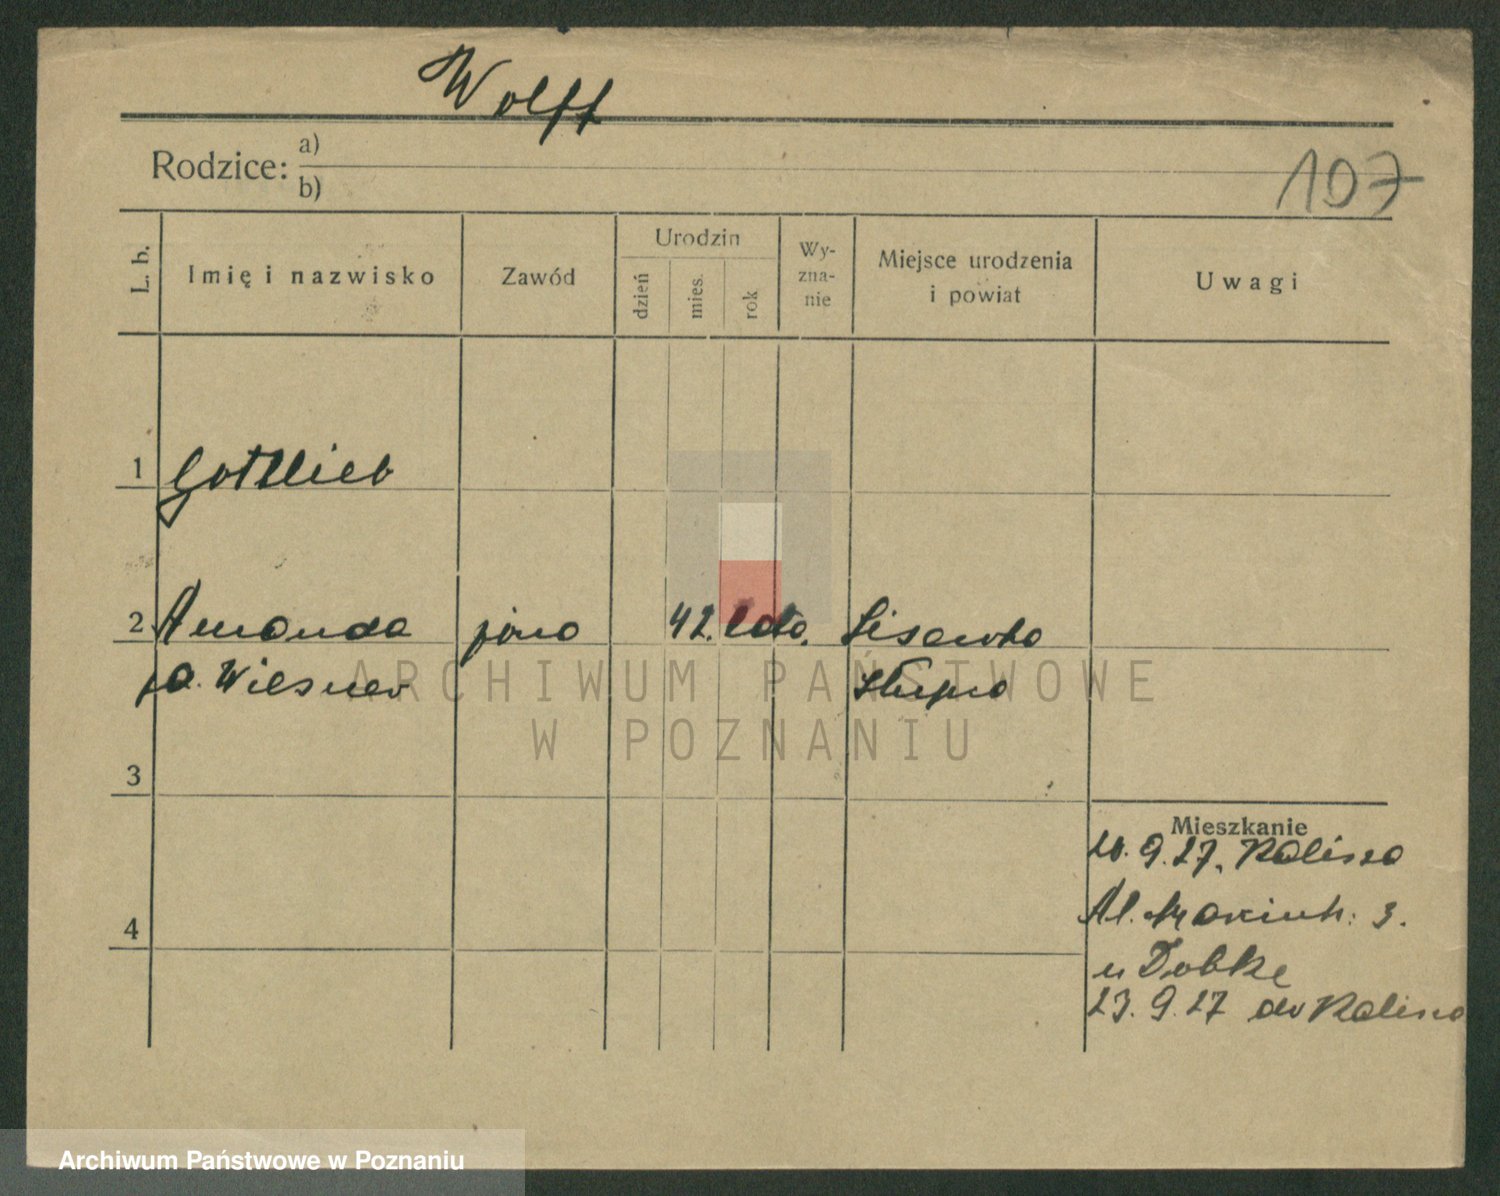 Wolff
Rodzice: a)
b)
107
L. b.
Imię i nazwisko
Zawód
Urodzin
dzień
mies.
rok
Wy-
zna-
nie
Miejsce urodzenia
i powiat
Uwagi
1 Gottlieb
2 Amanda żona 42 lata. Lisewko
Wiesner Słupca
3
Mieszkanie
20.9.27. Kalisza
4
Al. Marcink: 3.
u Dobke
23.9.27 do Kalisza
ARCHIWUM PAŃSTWOWE
W POZNANIU
Archiwum Państwowe w Poznaniu